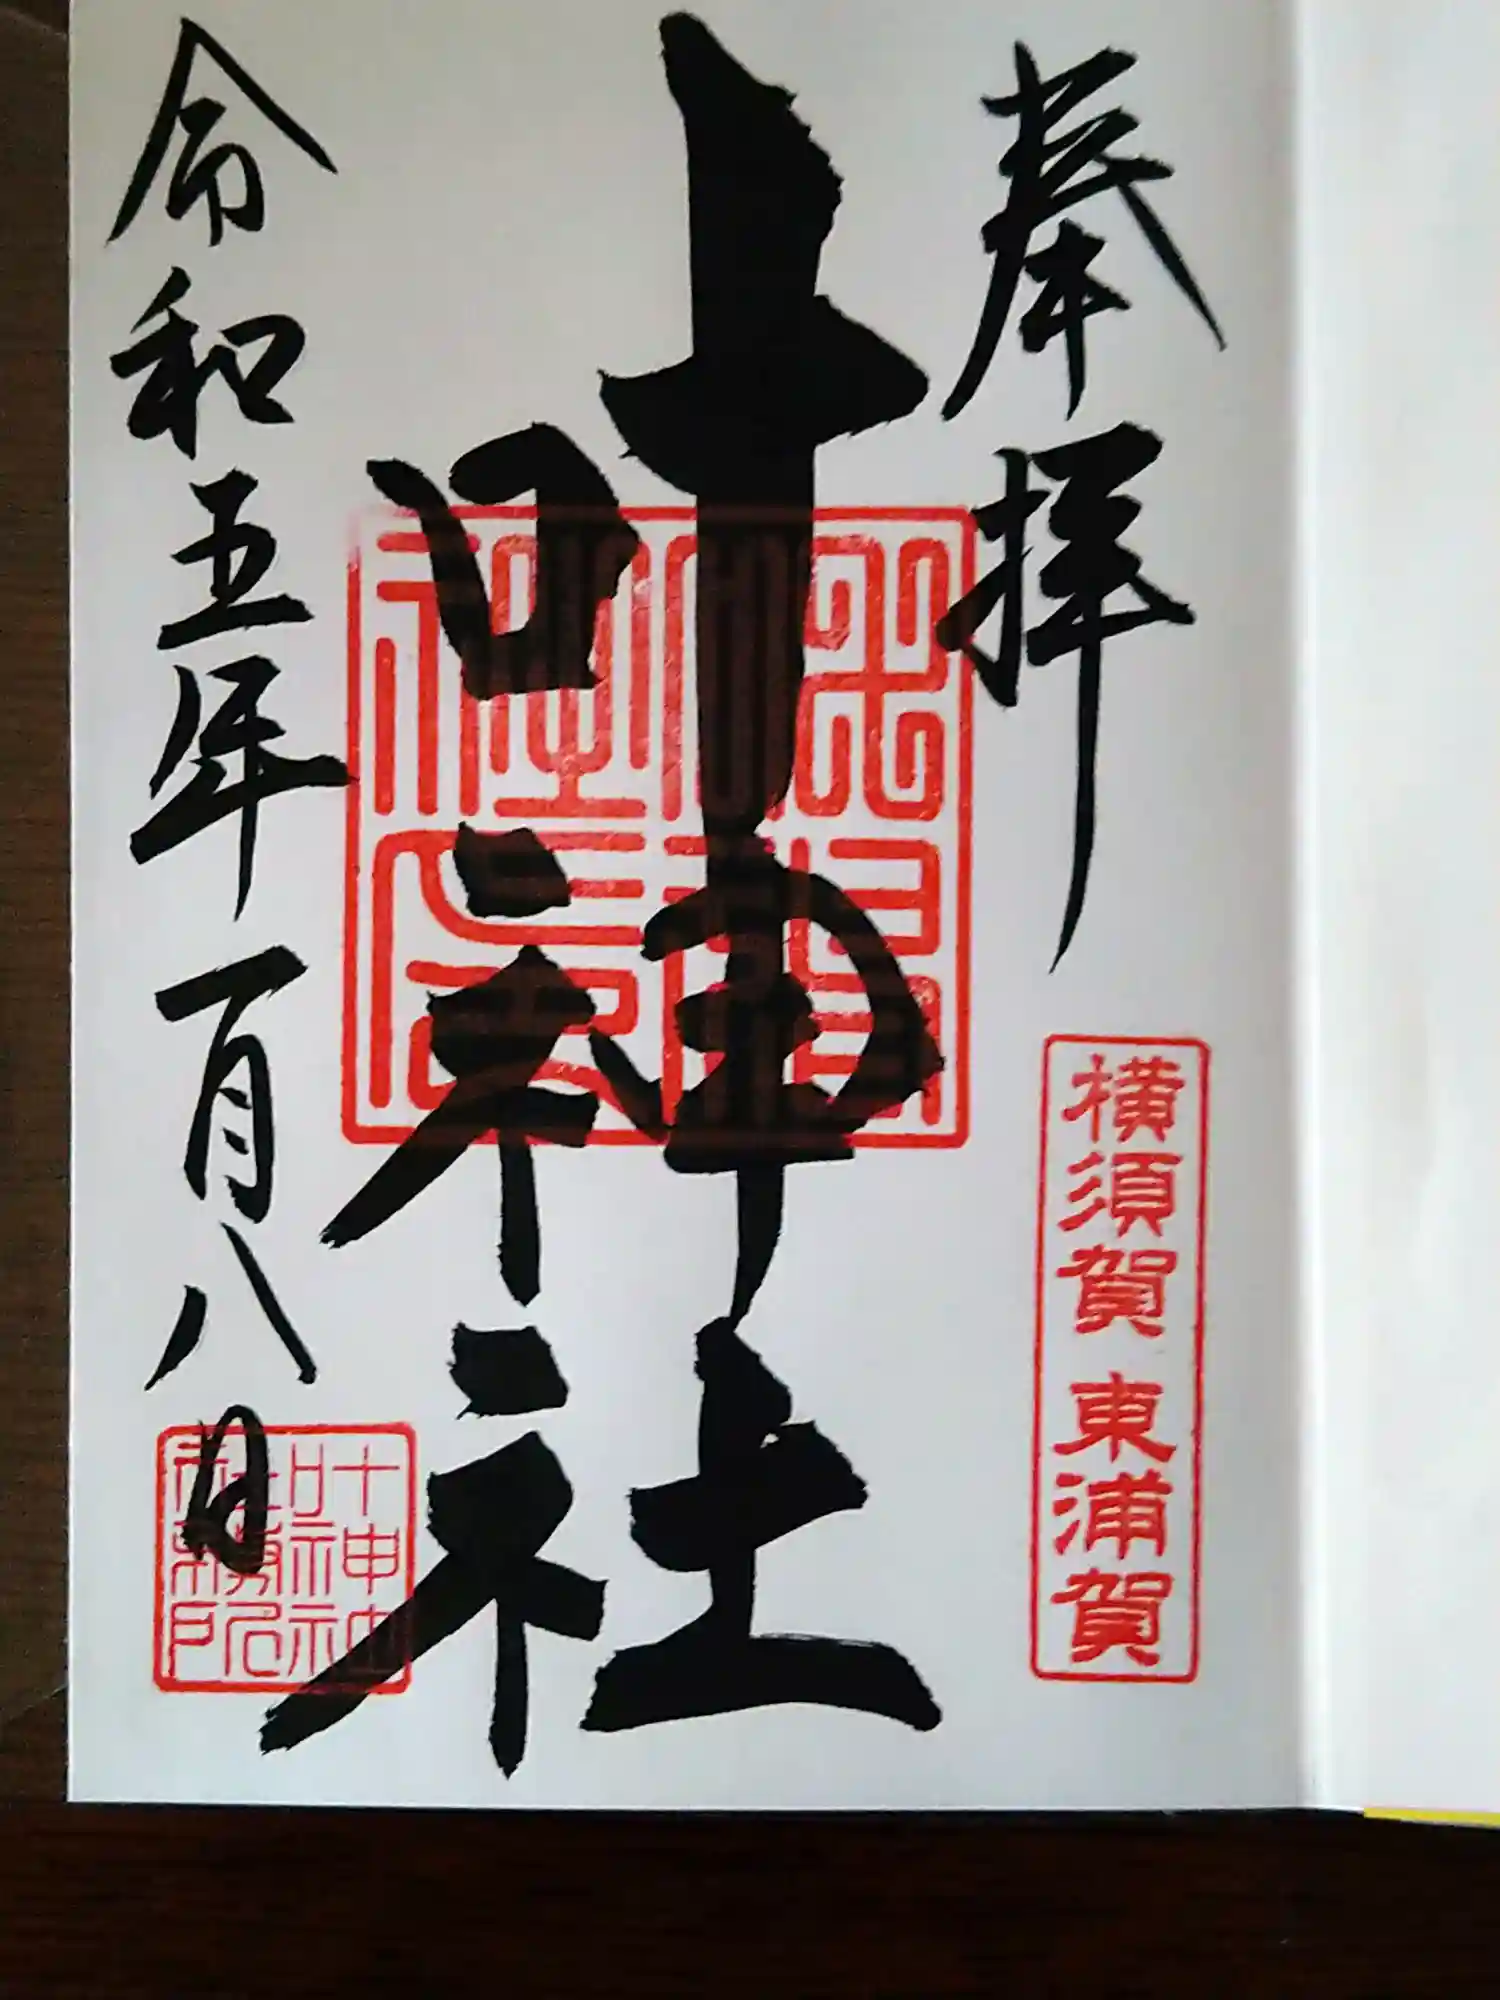 奉拝
横須賀 東浦賀
叶神社
令和五年一月八日
叶神社
社務所